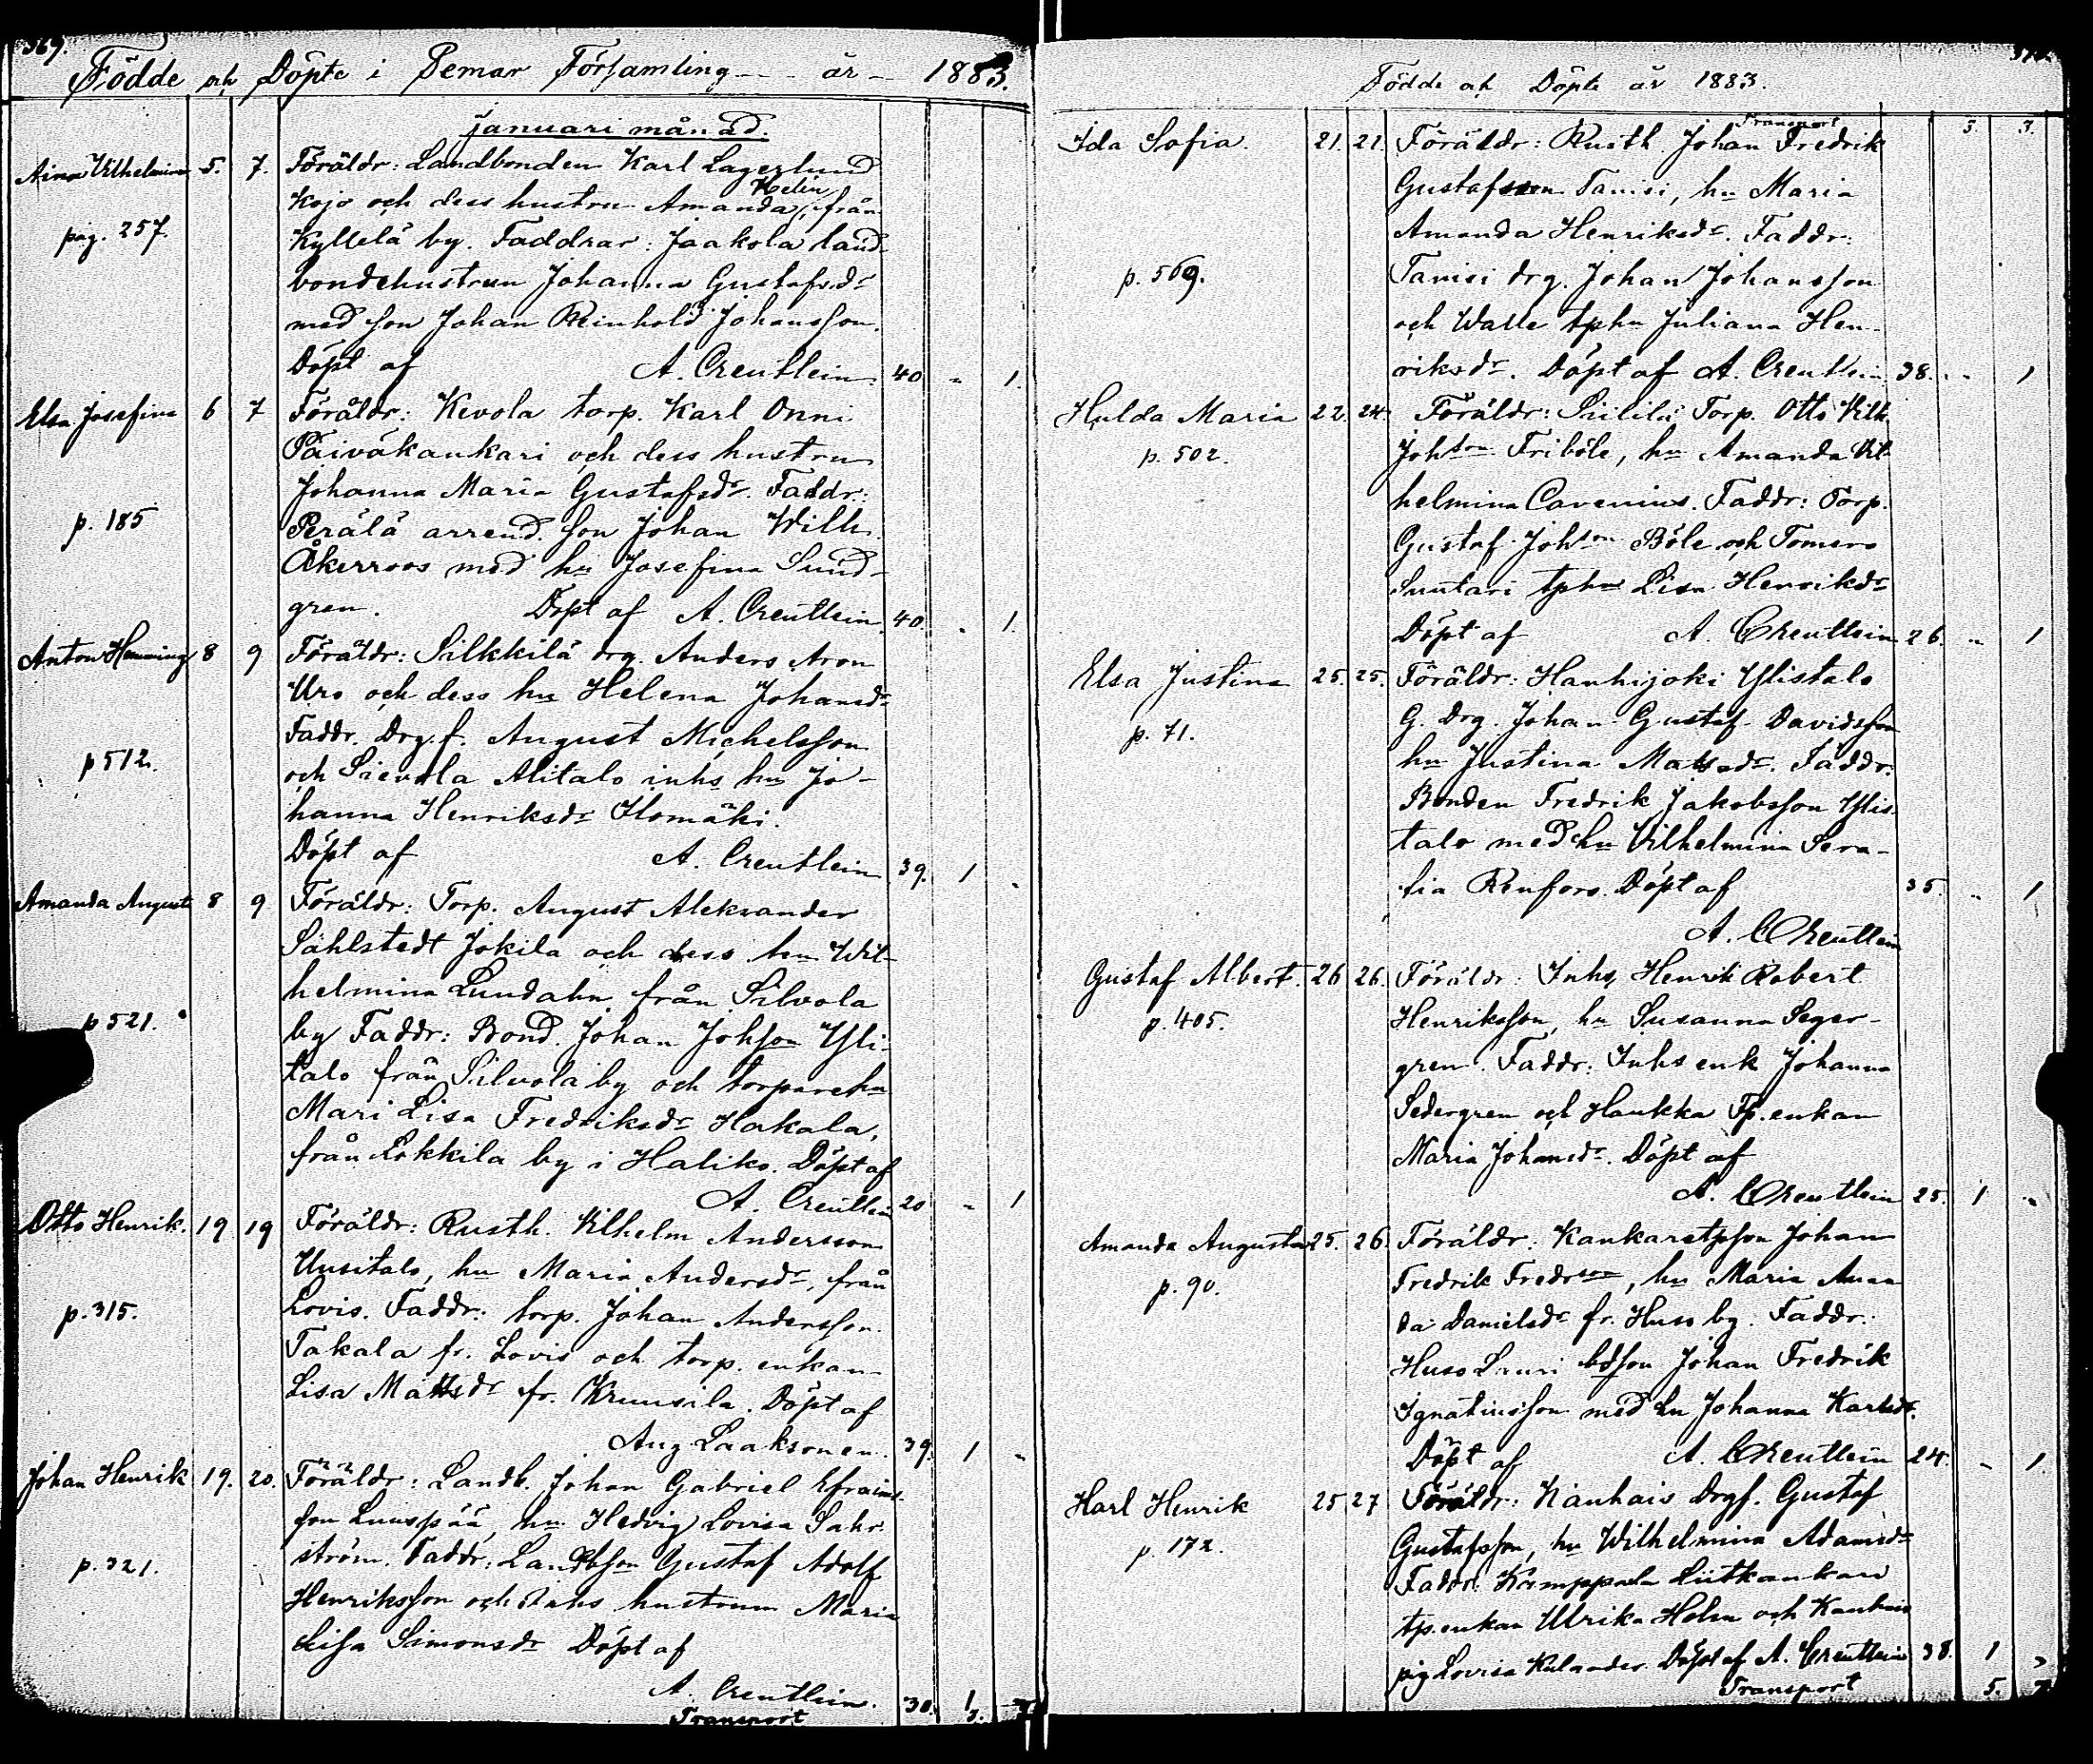 369.
Födde och Döpte i Pemar Församling — år — 1883.
Januari månad.
Aina Vilhelmina 5. 7. Föräldr: Landbonden Karl Lagerlund
Kojo och dess hustru Amanda Helin, från
pag. 257. Kyllelä by. Faddrar: Jaakola land-
bondehustrun Johanna Gustafsdr
med son Johan Reinhold Johansson.
Döpt af A. Creutlein. 40 " 1.
Elsa Josefina 6 7 Föräldr: Kevola torp. Karl Onni
Päiväkankari och dess hustru
Johanna Maria Gustafsdr. Faddr:
p. 185 Perälä arrend. son Johan Wilh.
Åkerroos med hu Josefina Sund-
gren. Döpt af A. Creutlein. 40. . 1.
Anton Henning 8 9 Föräldr: Silkkilä drg. Anders Aron
Uro och dess hu Helena Johansdr
Faddr. Drg. f. August Michelsson
p 512. och Sievola Alitalo inhs hu Jo-
hanna Henriksdr Ilomäki.
Döpt af A. Creutlein 39. 1 .
Amanda Augusta 8 9 Föräldr: Torp. August Aleksander
Sahlstedt Jokila och dess hu Wil-
helmina Lundahn från Silvola
p 521. by Faddr: Bond. Johan Johsson Yli-
talo från Silvola by och torparehu
Mari Lisa Fredriksdr Hakala,
från Lokkila by i Haliko. Döpt af
A. Creutlein 20 " 1
Otto Henrik. 19. 19 Föräldr: Rusth. Vilhelm Andersson
Uusitalo, hu Maria Andersdr, från
p. 315. Lovis. Faddr: torp. Johan Andersson
Takala fr. Lovis och torp. enkan
Lisa Mattsdr fr. Kruusila. Döpt af
Aug. Laaksonen. 39. 1 "
Johan Henrik 19. 20. Föräldr: Landb. Johan Gabriel Efraims-
son Luuspää, hu Hedvig Lovisa Sahr-
p. 321. ström. Faddr: Landbson Gustaf Adolf
Henriksson och Inhs hustrun Maria
Lisa Simonsdr Döpt af
A. Creutlein. 30. 1
Transport 3.
Födde och Döpte år 1883.
Transport 3. 3.
Ida Sofia. 21. 21. Föräldr: Rusth. Johan Fredrik
Gustafsson Tanisi, hu Maria
Amanda Henriksdr. Faddr:
p. 569. Tanisi drg. Johan Johansson
och Walle tphu Juliana Hen-
riksdr. Döpt af A. Creutlein 38. " 1
Hulda Maria 22. 24. Föräldr: Siililä Torp. Otto Vilh.
p. 502. Johson Friböle, hu Amanda Vil-
helmina Cavenius. Faddr: Torp.
Gustaf Johson Böle och Tomero
Suutari tphu Lisa Henriksdr
Döpt af A. Creutlein 26. " 1
Elsa Justina 25. 25. Föräldr: Hanhijoki Ylistalo
p. 71. G. Drg. Johan Gustaf Davidsson
hu Justina Matsdr. Faddr:
Bonden Fredrik Jakobsson Ylis-
talo med hu Vilhelmina Sera-
fia Renfors. Döpt af 35. " 1
A. Creutlein
Gustaf Albert. 26 26. Föräldr: Inhs, Henrik Robert
p. 405. Henriksson, hu Susanna Seger-
gren. Faddr: Inhs enk Johanna
Sedergren och Haukka Tp. enkan
Maria Johansdr. Döpt af
A. Creutlein 25. 1 "
Amanda Augusta 25. 26. Föräldr: Kankaretpson Johan
p. 90. Fredrik Fredrson, hu Maria Aman
da Danielsdr fr. Huso by. Faddr:
Huso Lauri bdson Johan Fredrik
Ignatiusson med hu Johanna Karlsdr.
Döpt af A. Creutlein 24. " 1.
Karl Henrik 25 27 Föräldr: Kanhais Drgf. Gustaf
p. 172. Gustafsson, hu Wilhelmina Adamsdr
Faddr: Kamppala Liitkankare
tp. enkan Ulrika Holm och Kanhais
pig Lovisa Kulander. Döpt af A. Creutlein 38. 1 "
Transport 5. 7